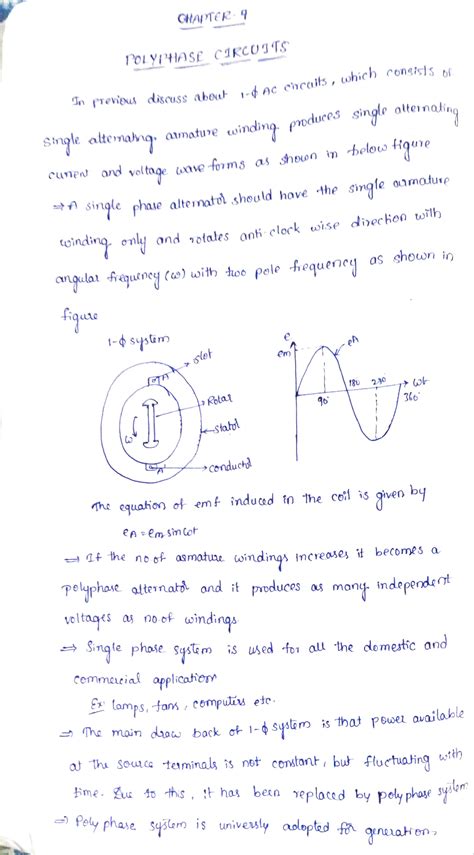 CHAPTER-4
POLYPHASE CIRCUITS
In previous discuss about 1-ϕ AC circuits, which consists of
single alternating armature winding produces single alternating
current and voltage wave forms as shown in below figure
⇒ A single phase alternator should have the single armature
winding only and rotates anti clock wise direction with
angular frequency (ω) with two pole frequency as shown in
figure
1-ϕ system
slot
A
Rotar
stator
ω
A'
conductor
e
em
eA
90°
180
270
360°
ωt
The equation of emf induced in the coil is given by
eA = em sinωt
⇒ If the no of armature windings increases it becomes a
polyphase alternator and it produces as many independent
voltages as no of windings
⇒ Single phase system is used for all the domestic and
commercial application
Ex: lamps, fans, computers etc.
⇒ The main draw back of 1-ϕ system is that power available
at the source terminals is not constant, but fluctuating with
time. Due to this, it has been replaced by poly phase system
⇒ Poly phase system is universly adopted for generation,